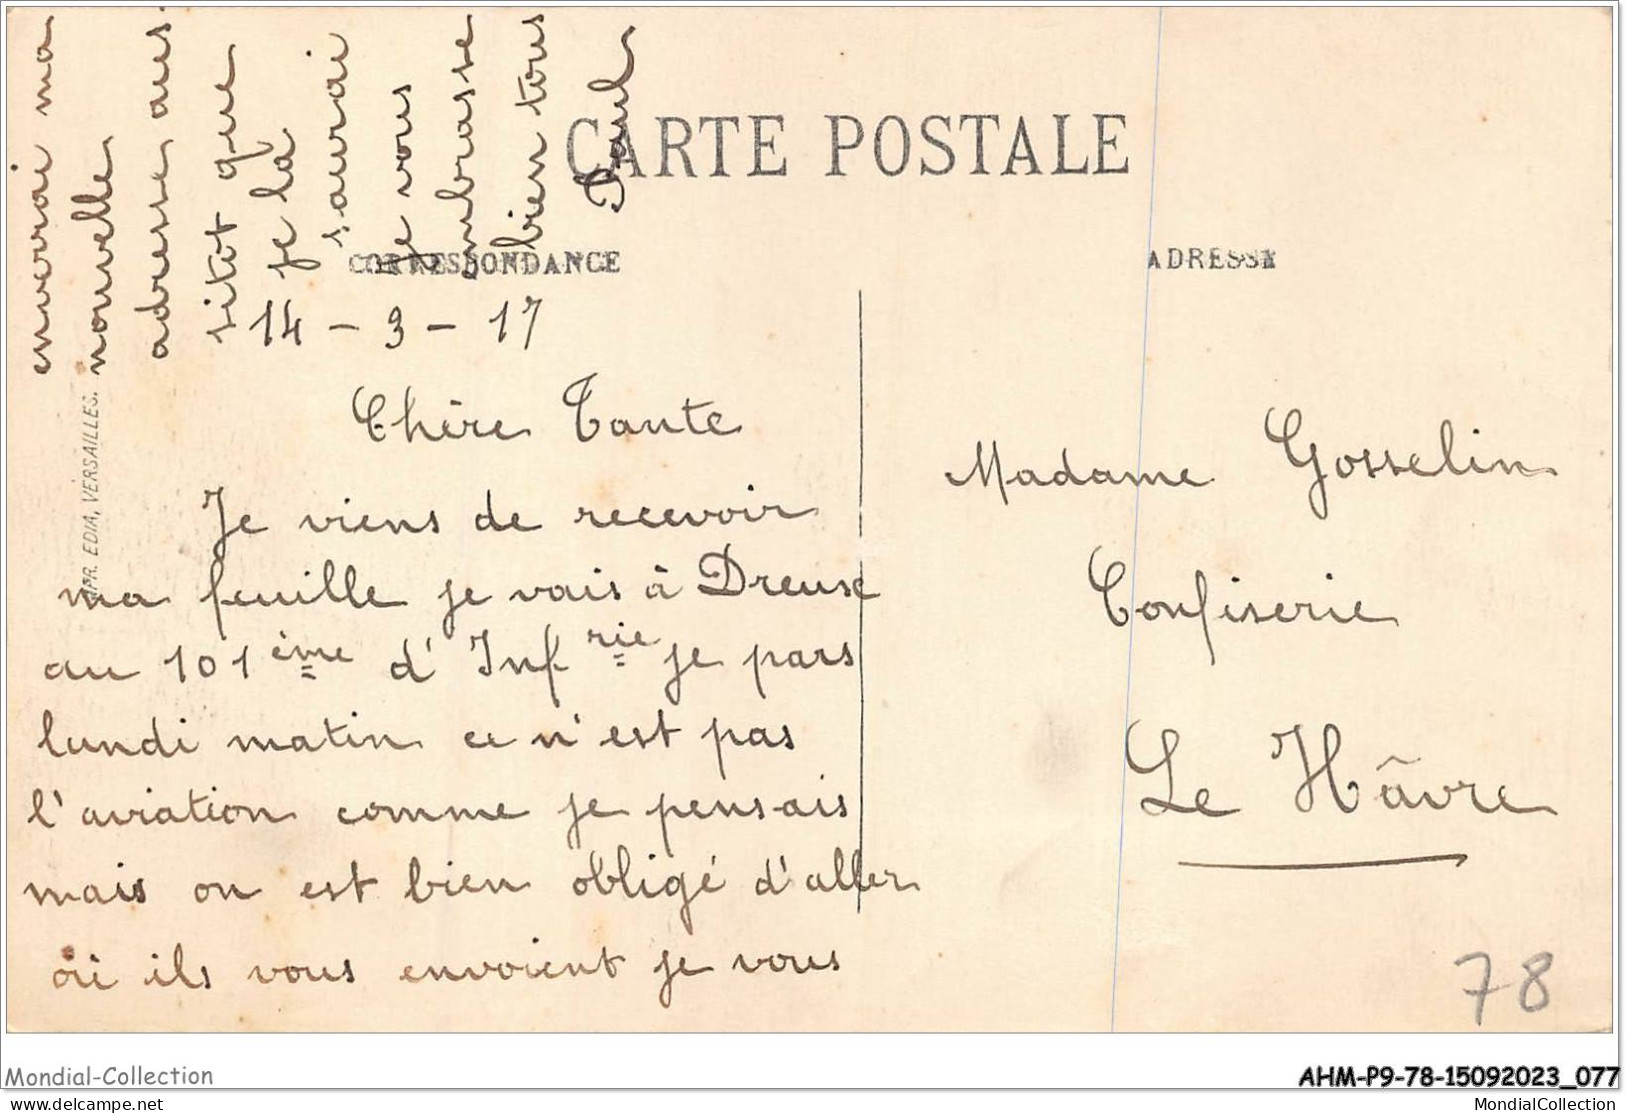 CARTE POSTALE
CORRESPONDANCE
ADRESSE
14 - 3 - 17
Chère Tante
Je viens de recevoir
ma feuille je vais à Dreux
au 101 ème d'Inf rie je pars
lundi matin ce n'est pas
l'aviation comme je pensais
mais on est bien obligé d'aller
où ils vous envoient je vous
enverrai ma
nouvelle
adresse aus
sitot que
je la
saurai
Je vous
embrasse
bien tous
Paul
Madame Gosselin
Confiserie
Le Hâvre
IMPR. EDIA, VERSAILLES.
78
Mondial-Collection
AHM-P9-78-15092023_077
delcampe.net
MondialCollection